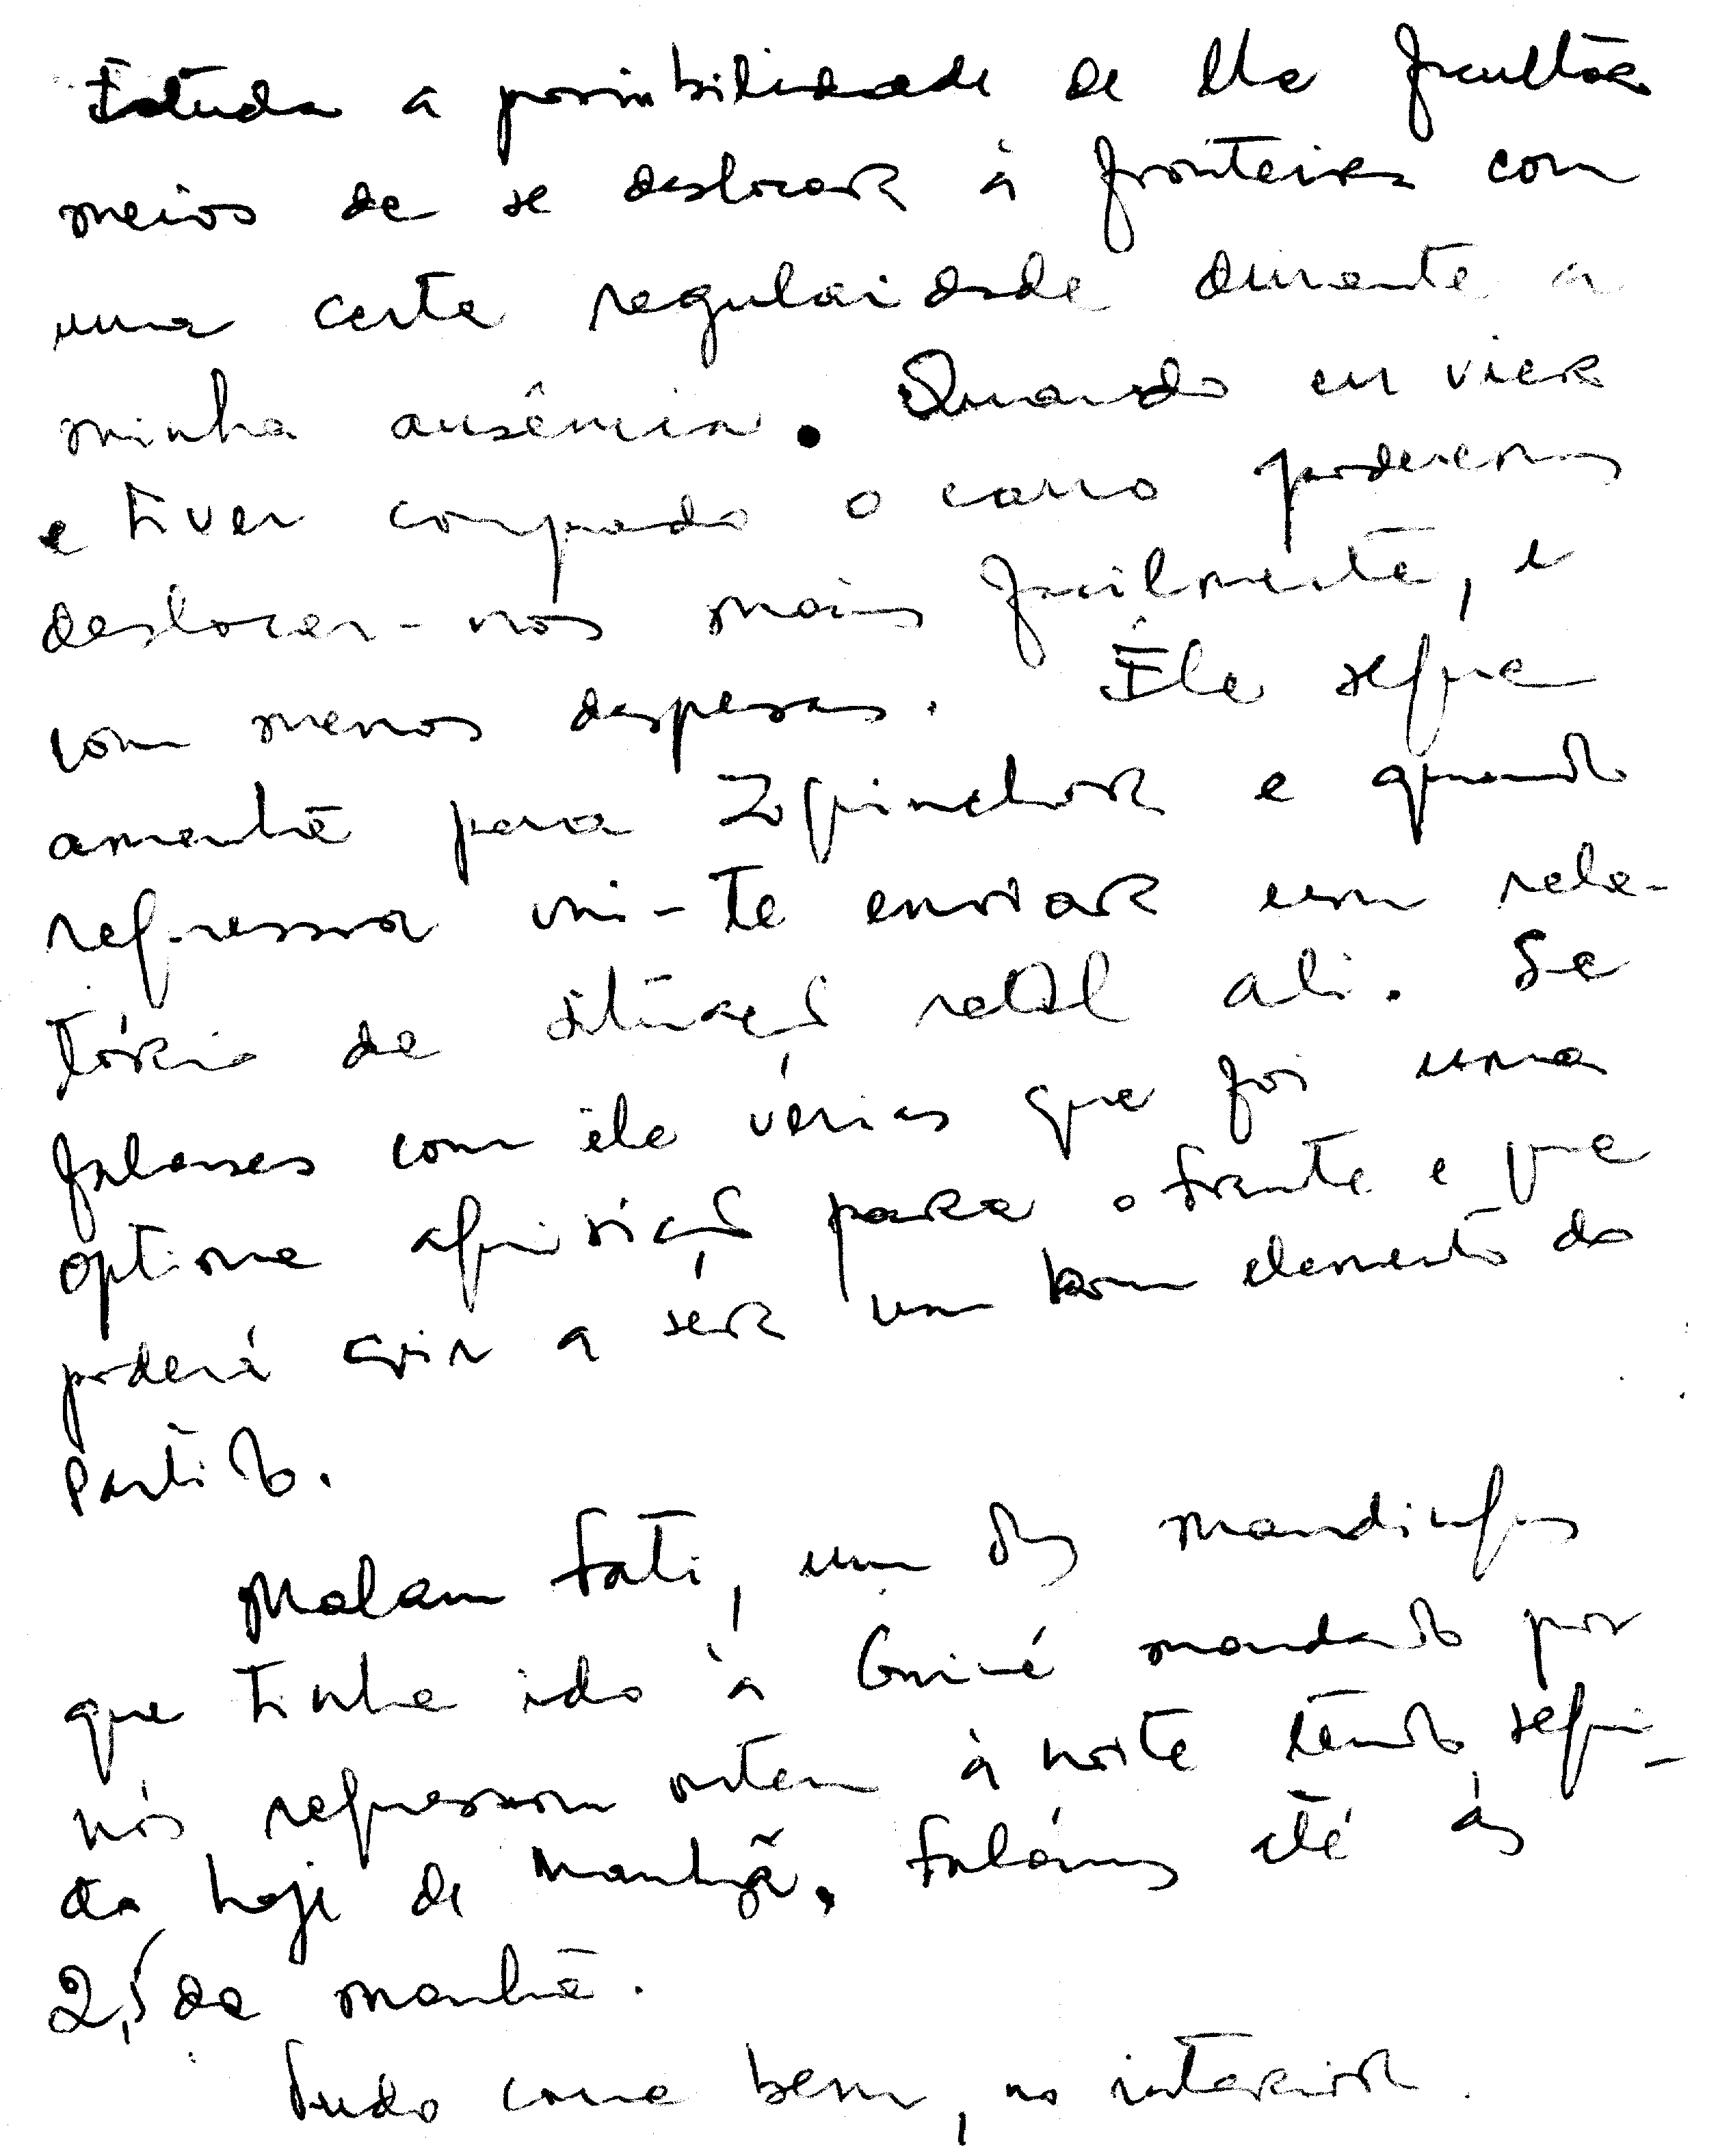 Estuda a possibilidade de lhe facultar
meios de se deslocar à fronteira com
uma certa regularidade durante a
minha ausência. Quando eu vier
e tiver comprado o carro poderemos
deslocar-nos mais facilmente, e
com menos despesas. Êle segue
amanhã para Ziguinchor e quando
regressar vai-te enviar um rela-
tório da situação real ali. Se
falares com êle vérias que foi uma
optima aquisição para a Frente e que
poderá vir a sêr um bom elemento do
Partido.
Malam Fati, um dos mandingas
que tinha ido à Guiné mandado por
nós regressou ontem à noite tendo segui-
do hoje de manhã. Falámos até ás
2,5 da manhã.
Tudo corre bem, no interior.